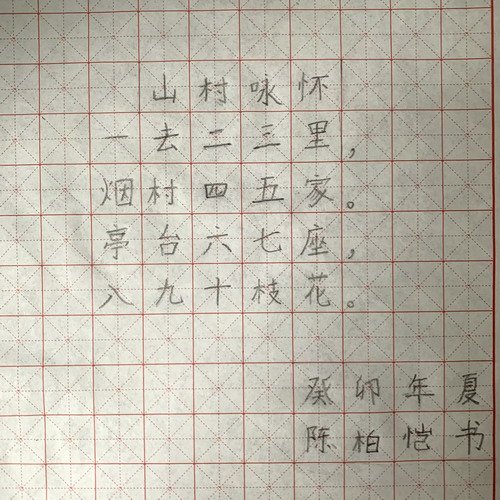 山村咏怀
一去二三里，
烟村四五家。
亭台六七座，
八九十枝花。
癸卯年夏
陈柏恺书